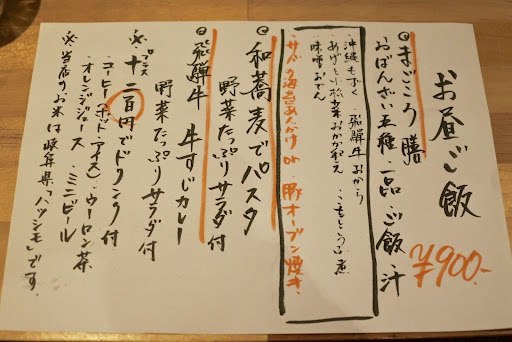 お昼ご飯
¥900-
◎まごころ膳
おばんざい五種・一品・ご飯・汁
沖縄もずく・飛騨牛おから
あげと小松菜おかか和え・こもどうふ煮
味噌おでん
サバの海苔あんかけ or 豚オーブン焼き
◎和蕎麦でパスタ
野菜たっぷりサラダ付
◎飛騨牛 牛すじカレー
野菜たっぷりサラダ付
※プラス十二百円でドリンク付
・コーヒー(ホット・アイス)・ウーロン茶
・オレンジジュース・ミニビール
※当店のお米は岐阜県「ハツシモ」です。